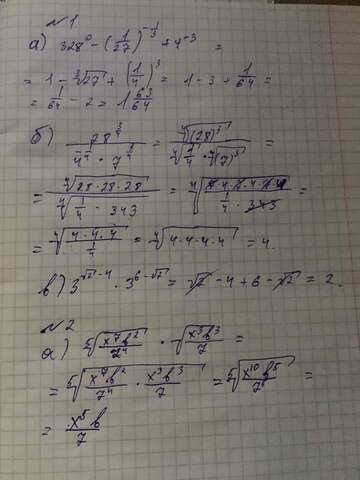 №1
а) 328⁰ - (1/27)^(-1/3) + 4^(-3) =
= 1 - ³√27 + (1/4)³ = 1 - 3 + 1/64 =
= 1/64 - 2 = 1 63/64
б) 28^(3/4) / (4^(-1/4) · 7^(3/4)) = ⁴√(28)³ / (⁴√(1/4) · ⁴√(7)³) =
= ⁴√(28·28·28) / ⁴√(1/4 · 343) = ⁴√((7·4·7·4·7·4) / (1/4 · 343)) =
= ⁴√((4·4·4) / (1/4)) = ⁴√(4·4·4·4) = 4.
в) 3^(√2-4) · 3^(6-√2) = √2 - 4 + 6 - √2 = 2.
№2
а) ⁵√(x⁷b²/7⁴) · ⁵√(x³b³/7) =
= ⁵√(x⁷b²/7⁴ · x³b³/7) = ⁵√(x¹⁰b⁵/7⁵) =
= x⁵b/7